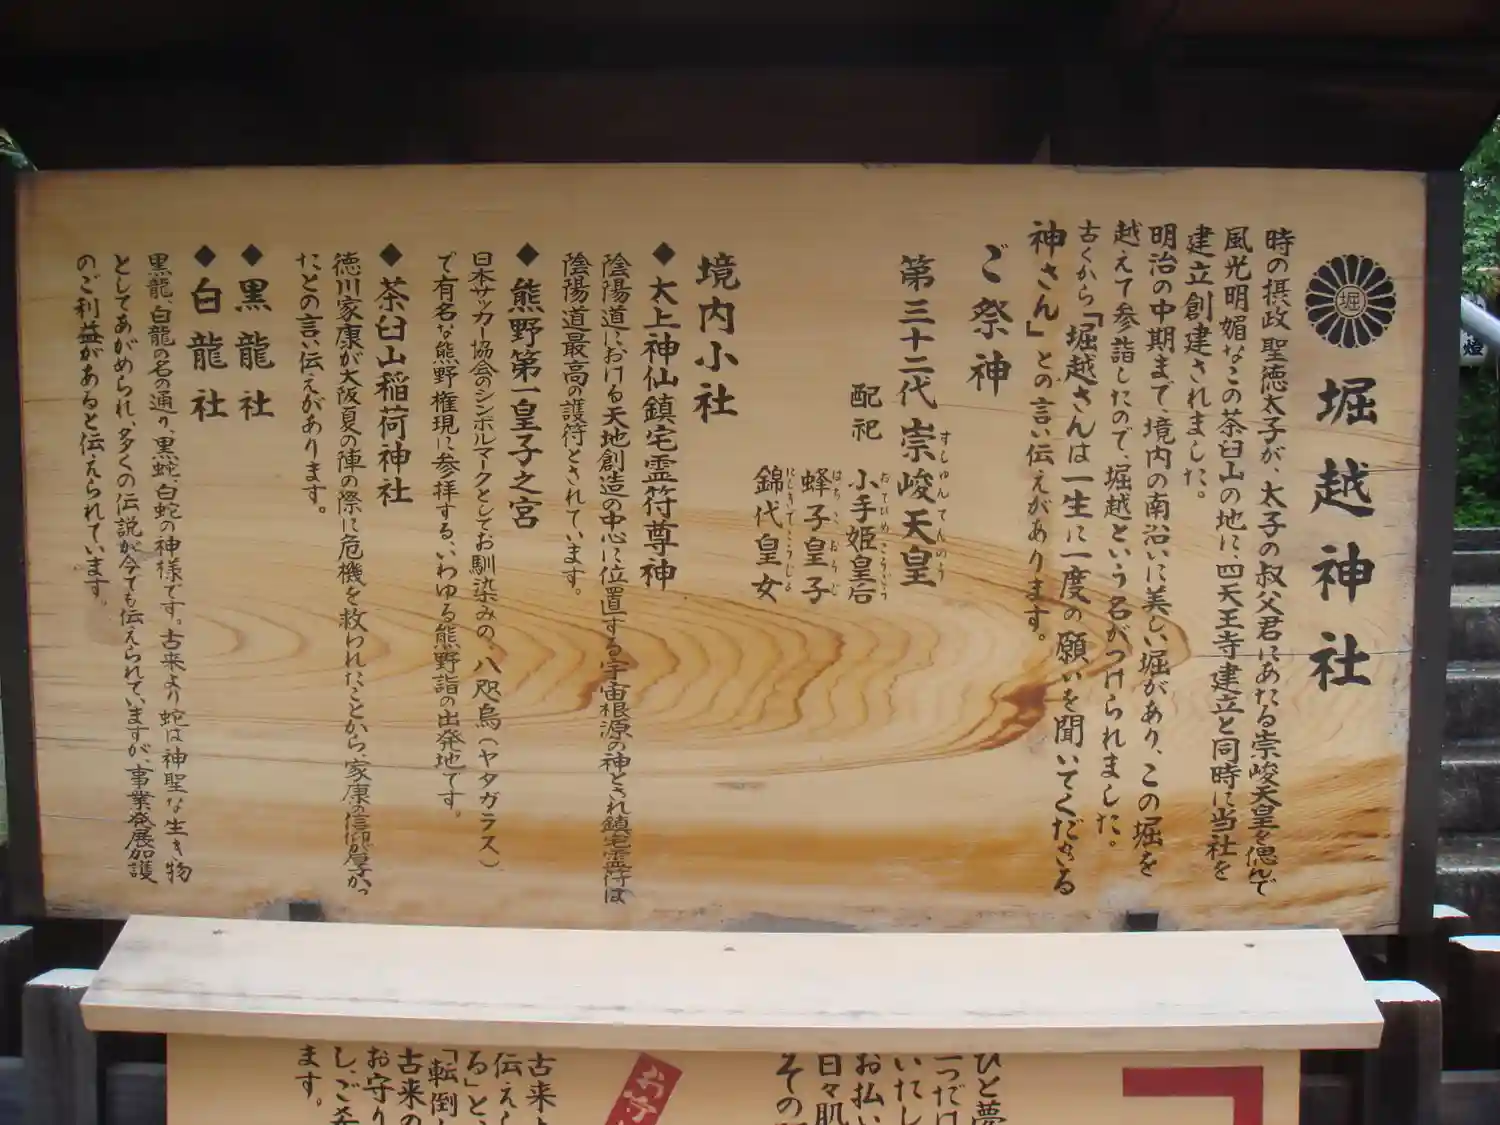 堀
堀越神社
時の摂政聖徳太子が、太子の叔父君にあたる崇峻天皇を偲んで
風光明媚なこの茶臼山の地に、四天王寺建立と同時に当社を
建立創建されました。
明治の中期まで、境内の南沿いに美しい堀があり、この堀を
越えて参詣したので、堀越という名がつけられました。
古くから「堀越さんは一生に一度の願いを聞いてくださる
神さん」との言い伝えがあります。
ご祭神
第三十二代崇峻天皇
すしゅんてんのう
配祀 小手姫皇后
おてひめこうごう
蜂子皇子
はちこおうじ
錦代皇女
にしきてこうじょ
境内小社
◆太上神仙鎮宅霊符尊神
陰陽道における天地創造の中心に位置する宇宙根源の神とされ鎮宅霊符は
陰陽道最高の護符とされています。
◆熊野第一皇子之宮
日本サッカー協会のシンボルマークとしてお馴染みの、八咫烏(ヤタガラス)
で有名な熊野権現に参拝する、いわゆる熊野詣の出発地です。
◆茶臼山稲荷神社
徳川家康が大阪夏の陣の際に危機を救われたことから、家康の信仰が厚かっ
たとの言い伝えがあります。
◆黒龍社
◆白龍社
黒龍、白龍の名の通り、黒蛇、白蛇の神様です。古来より蛇は神聖な生き物
としてあがめられ、多くの伝説が今でも伝えられていますが、事業発展加護
のご利益があると伝えられています。
ひと夢
一つだけ
いたし
お払い
日々肌
その
お守
古来
伝え
る」と
「転倒
古来の
お守り
し、ご
ます。